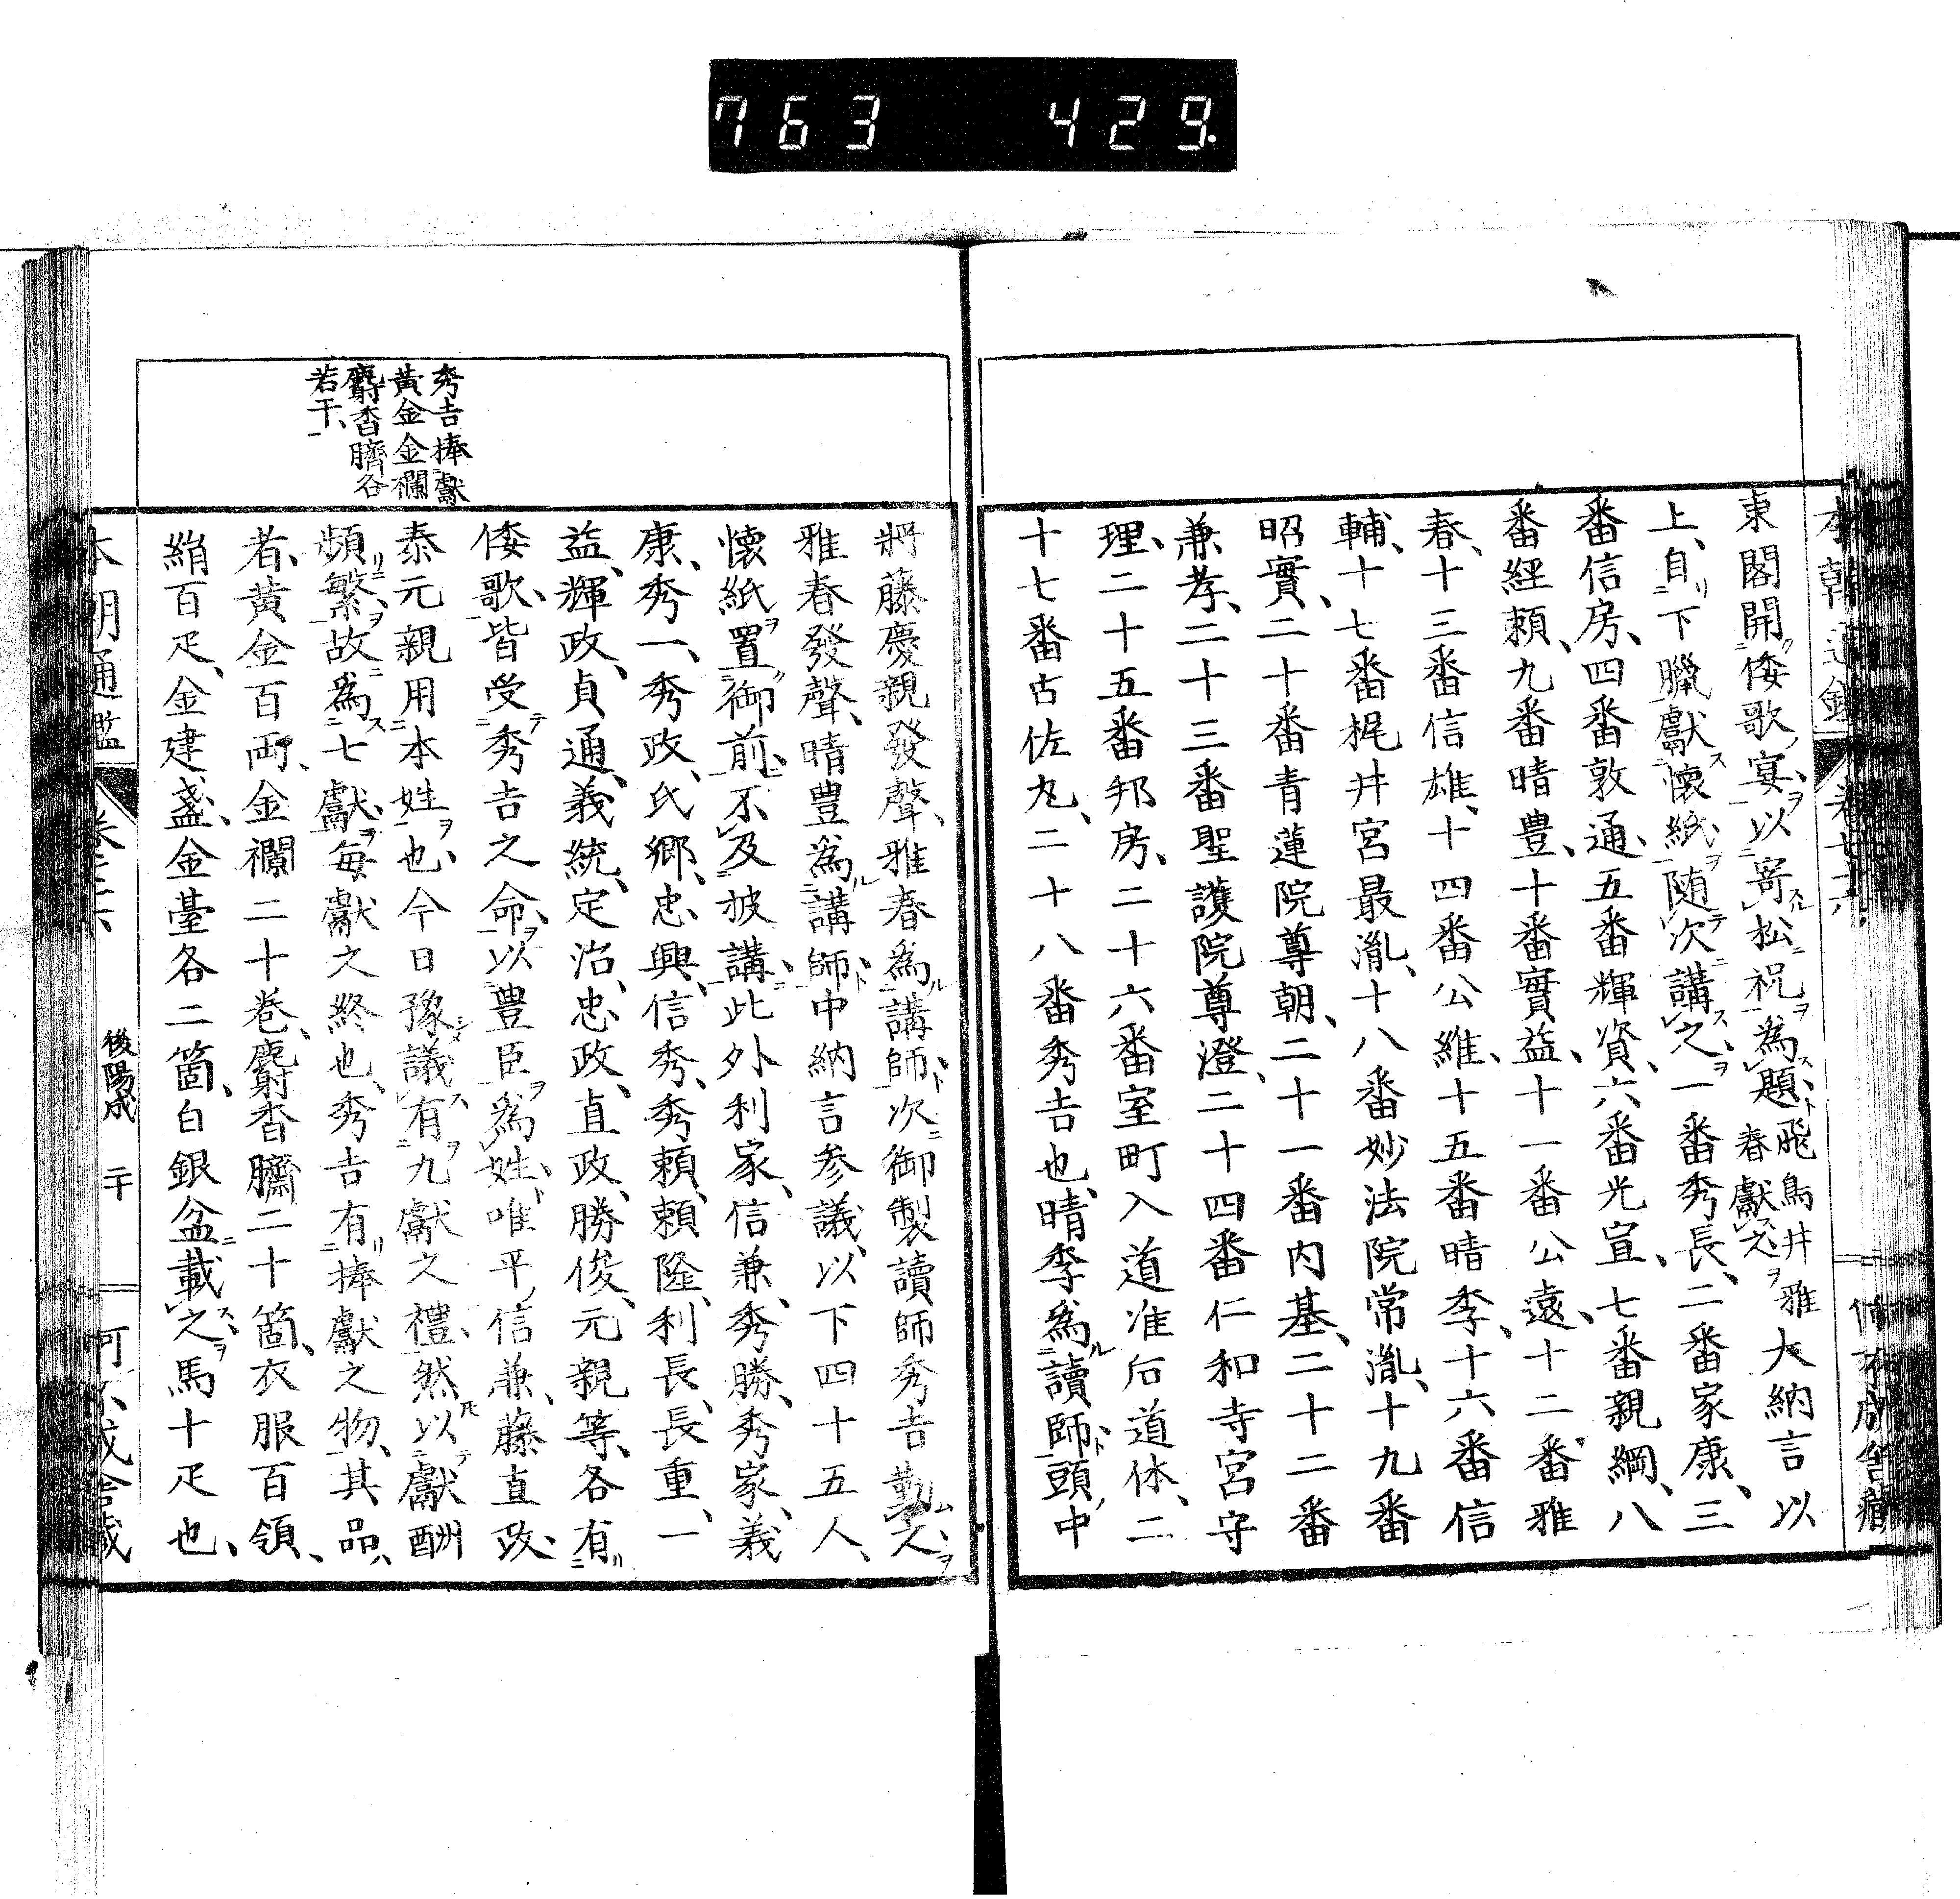 763 429.
東閣開倭歌宴、以寄松祝為題、飛鳥井雅春獻之大納言以
上、自下臈獻懷紙、随次講之、一番秀長、二番家康、三
番信房、四番敦通、五番輝資、六番光宣、七番親綱、八
番経頼、九番晴豊、十番實益、十一番公遠、十二番雅
春、十三番信雄、十四番公維、十五番晴季、十六番信
輔、十七番梶井宮最胤、十八番妙法院常胤、十九番
昭實、二十番青蓮院尊朝、二十一番内基、二十二番
兼孝、二十三番聖護院尊澄、二十四番仁和寺宮守
理、二十五番邦房、二十六番室町入道准后道休、二
十七番古佐丸、二十八番秀吉也、晴季為讀師、頭中
將藤慶親發聲、雅春為講師、次御製讀師秀吉勤之、
雅春發聲、晴豊為講師、中納言参議、以下四十五人、
懷紙置御前、不及披講、此外利家、信兼、秀勝、秀家、義
康、秀一、秀政、氏郷、忠興、信秀、秀頼、頼隆、利長、長重、一
益、輝政、貞通、義統、定治、忠政、直政、勝俊、元親等、各有
倭歌、皆受秀吉之命、以豊臣為姓、唯平信兼、藤直政、
泰元親用本姓也、今日豫議有九獻之禮、然以獻酬
頻繁、故為七獻、毎獻之終也、秀吉有捧獻之物、其品
者、黄金百両、金襴二十巻、麝香臍二十箇、衣服百領、
絹百疋、金建盞、金臺各二箇、白銀盆載之、馬十疋也、
秀吉捧獻
黄金金襴
麝香臍各
若干、
本朝通鑑
後陽成
二十